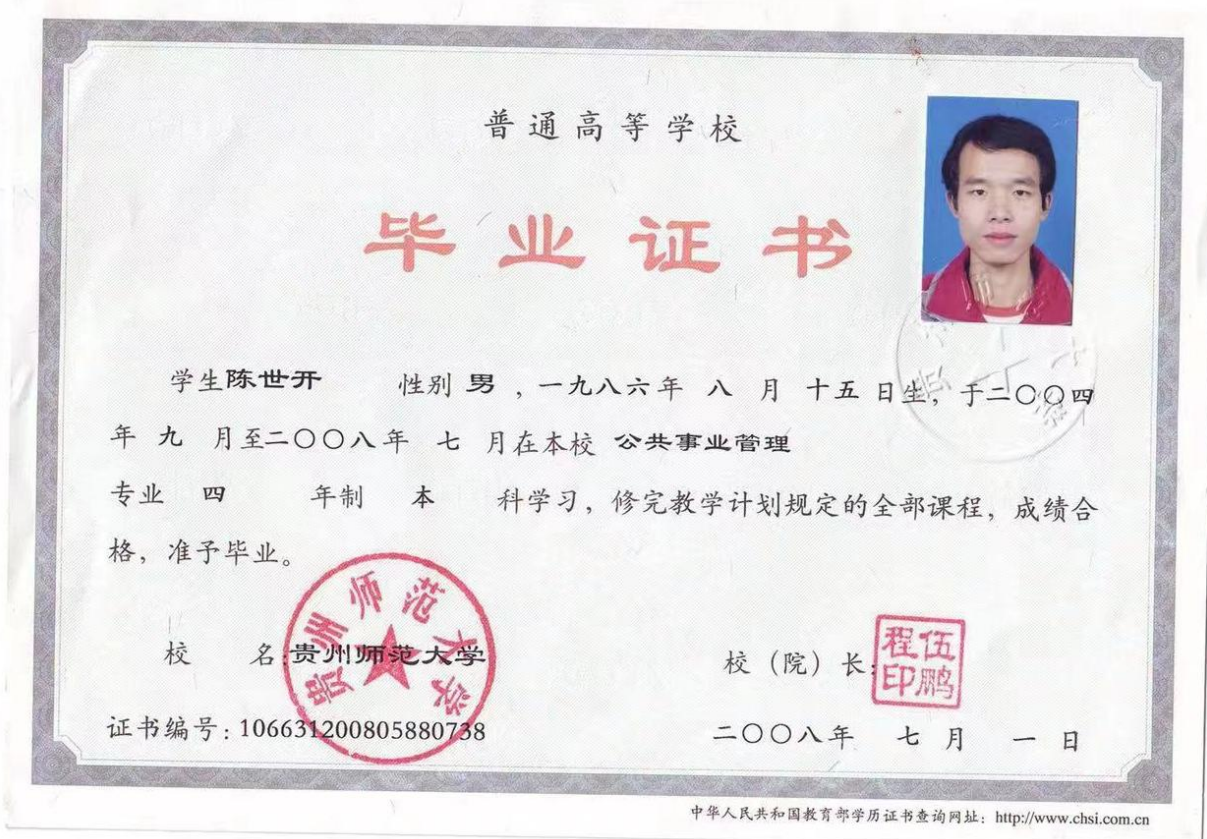 普通高等学校
毕业证书
学生陈世开 性别 男 ，一九八六年 八 月 十五 日生，于二〇〇四
年 九 月至二〇〇八年 七 月在本校 公共事业管理
专业 四 年制 本 科学习，修完教学计划规定的全部课程，成绩合
格，准予毕业。
贵州师范大学
校 名:贵州师范大学
校（院）长:
程伍鹏印
证书编号：106631200805880738
二〇〇八年 七 月 一 日
中华人民共和国教育部学历证书查询网址：http://www.chsi.com.cn